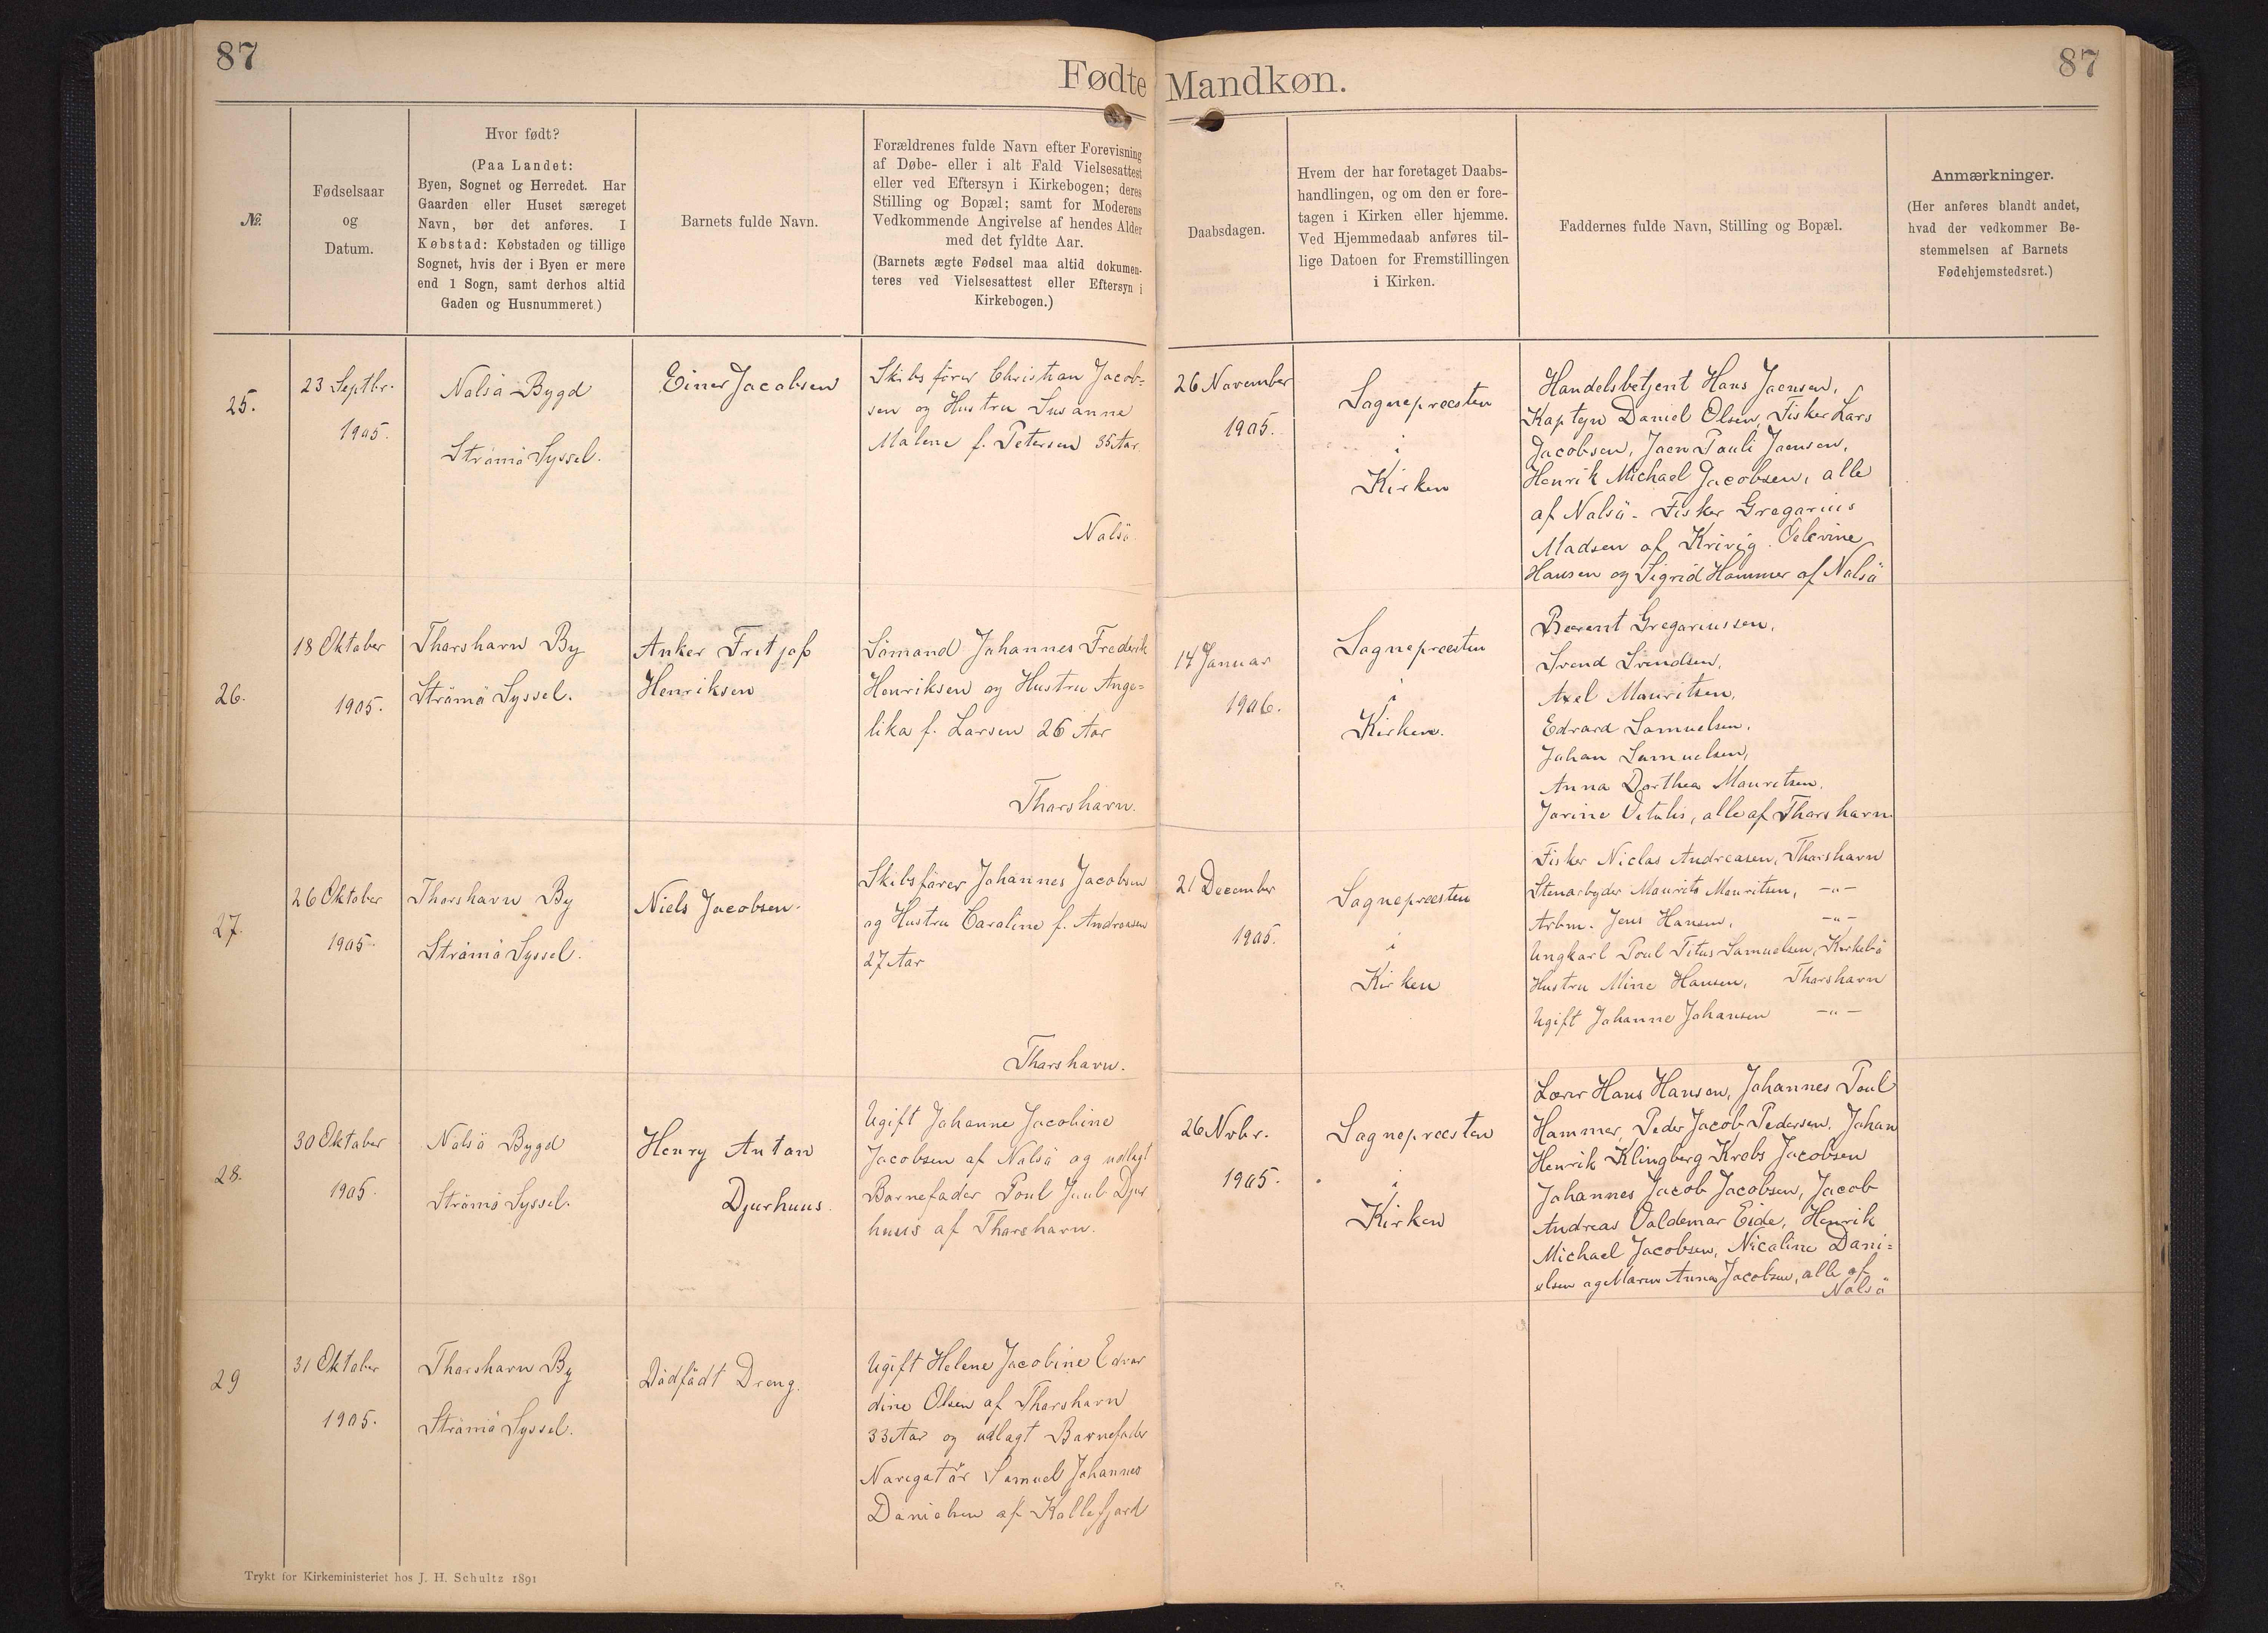 87
87
Fødte Mandkøn.
№.
Fødselsaar
og
Datum.
Hvor født?
(Paa Landet:
Byen, Sognet og Herredet. Har
Gaarden eller Huset særeget
Navn, bør det anføres. I
Købstad: Købstaden og tillige
Sognet, hvis der i Byen er mere
end 1 Sogn, samt derhos altid
Gaden og Husnummeret.)
Barnets fulde Navn.
Forældrenes fulde Navn efter Forevisning
af Døbe- eller i alt Fald Vielsesattest
eller ved Eftersyn i Kirkebogen; deres
Stilling og Bopæl; samt for Moderens
Vedkommende Angivelse af hendes Alder
med det fyldte Aar.
(Barnets ægte Fødsel maa altid dokumen-
teres ved Vielsesattest eller Eftersyn i
Kirkebogen.)
Daabsdagen.
Hvem der har foretaget Daabs-
handlingen, og om den er fore-
tagen i Kirken eller hjemme.
Ved Hjemmedaab anføres til-
lige Datoen for Fremstillingen
i Kirken.
Faddernes fulde Navn, Stilling og Bopæl.
Anmærkninger.
(Her anføres blandt andet,
hvad der vedkommer Be-
stemmelsen af Barnets
Fødehjemstedsret.)
25.
23 Septbr.
1905.
Nolsö Bygd
Strömö Syssel.
Einer Jacobsen
Skibsfører Christian Jacob=
sen og Hustru Susanne
Malene f. Petersen 35 Aar
Nolsö.
26 November
1905.
Sognepræsten
i
Kirken
Handelsbetjent Hans Joensen,
Kaptejn Daniel Olsen, Fisker Lars
Jacobsen, Joen Pauli Joensen,
Henrik Michael Jacobsen, alle
af Nolsö. Fisker Gregorius
Madsen af Kvivig. Oelevine
Hansen og Sigrid Hammer af Nolsö
26.
18 Oktober
1905.
Thorshavn By
Strömö Syssel.
Anker Fritjof
Henriksen
Sömand Johannes Frederik
Henriksen og Hustru Ange=
lika f. Larsen 26 Aar
Thorshavn.
14 Januar
1906.
Sognepræsten
i
Kirken.
Berent Gregoriussen,
Svend Svendsen,
Axel Mouritsen,
Edvard Samuelsen,
Johan Samuelsen,
Anna Dorthea Mouritsen,
Jovine Vitalis, alle af Thorshavn
27.
26 Oktober
1905.
Thorshavn By
Strömö Syssel.
Niels Jacobsen.
Skibsfører Johannes Jacobsen
og Hustru Caroline f. Andreasen
27 Aar
Thorshavn.
21 December
1905.
Sognepræsten
i
Kirken
Fisker Niclas Andreasen, Thorshavn
Stenarbyder Maurits Mouritsen, -"-
Arbm. Jens Hansen, -"-
Ungkarl Poul Titus Samuelsen, Kirkebö
Hustru Mine Hansen, Thorshavn
Ugift Johanne Johansen -"-
28.
30 Oktober
1905.
Nolsö Bygd
Strömö Syssel.
Henry Anton
Djurhuus.
Ugift Johanne Jacobine
Jacobsen af Nolsö og udlagt
Barnefader Poul Juul Djur
huus af Thorshavn.
26 Nvbr.
1905.
Sognepræsten
i
Kirken
Lærer Hans Hansen, Johannes Poul
Hammer, Peder Jacob Pedersen, Johan
Henrik Klingberg Krebs Jacobsen
Johannes Jacob Jacobsen, Jacob
Andreas Valdemar Eide, Henrik
Michael Jacobsen, Nicoline Dani=
elsen og Maren Anna Jacobsen, alle af
Nolsö
29
31 Oktober
1905.
Thorshavn By
Strömö Syssel.
Dödfödt Dreng.
Ugift Helene Jacobine Edvar
dine Olsen af Thorshavn
33 Aar og udlagt Barnefader
Navigatör Samuel Johannes
Danielsen af Kollefjord
Trykt for Kirkeministeriet hos J. H. Schultz 1891